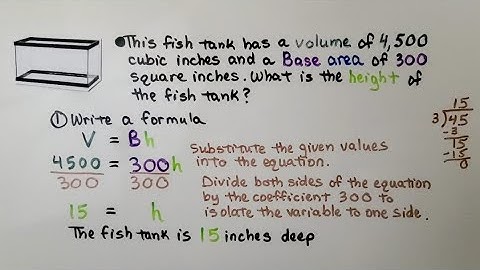 •This fish tank has a volume of 4,500
cubic inches and a Base area of 300
square inches. What is the height of
the fish tank?
① Write a formula
V = Bh
4500 = 300h
300 300
15 = h
The fish tank is 15 inches deep
Substitute the given values
into the equation.
Divide both sides of the equation
by the coefficient 300 to
isolate the variable to one side.
15
3)45
-3
15
-15
0